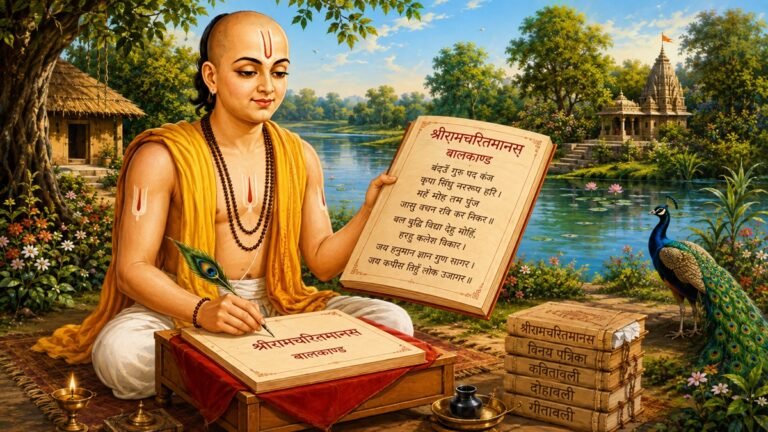 श्रीरामचरितमानस्
बालकाण्ड
बंदउँ गुरु पद कंज
कृपा सिंधु नररूप हरि।
महें मोह तम पुंज
जासु वचन रवि कर निकर॥
बल बुद्धि विद्या देहु मोहिं,
हरहु कलेश विकार।
जय हनुमान ज्ञान गुण सागर।
जय कपीस तिहुँ लोक उजागर॥
श्रीरामचरितमानस्
बालकाण्ड
श्रीरामचरितमानस
विनय पत्रिका
कवितावली
दोहावली
गीतावली